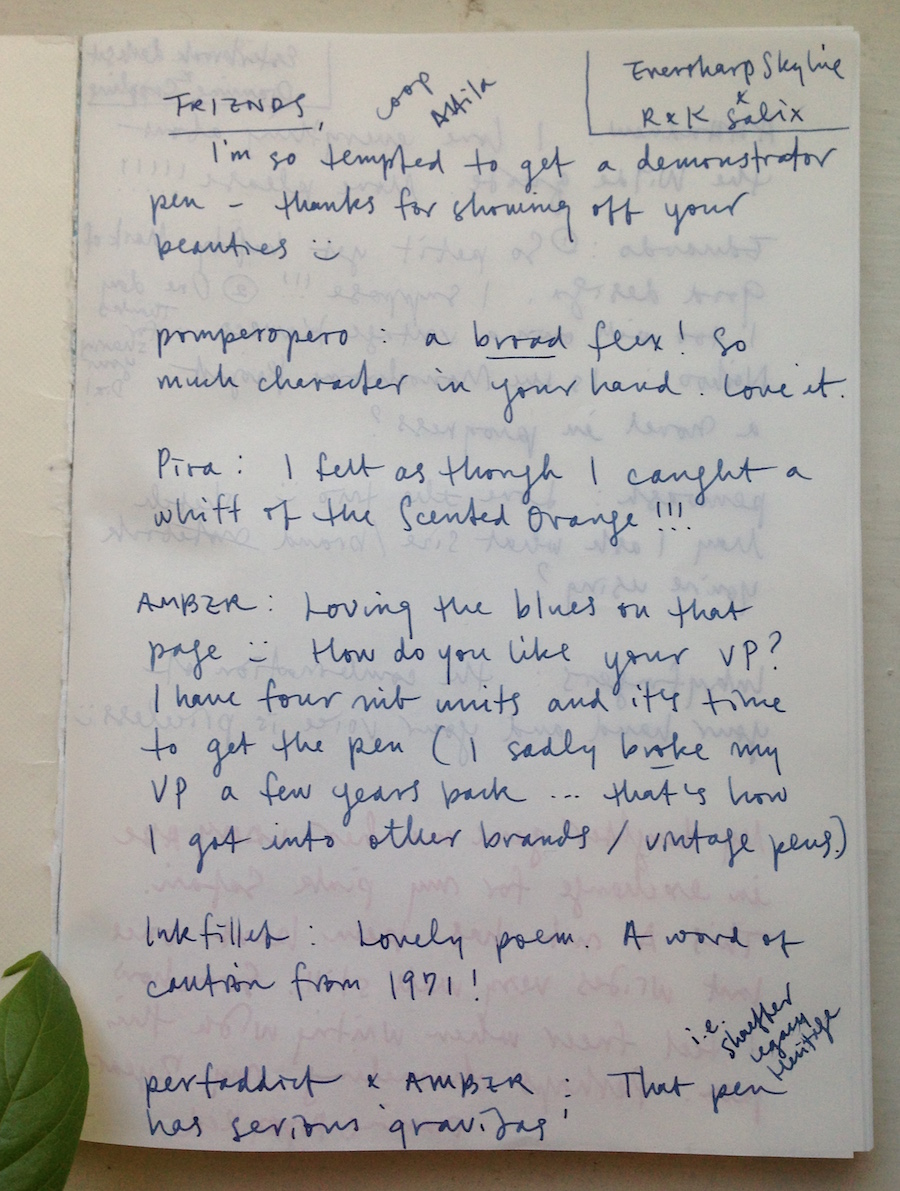 Eversharp Skyline
x
R x K Salix
FRIENDS, coop Attila
I'm so tempted to get a demonstrator
pen - thanks for showing off your
beauties
pomperopero : a broad flex! So
much character in your hand. Love it.
Pira : I felt as though I caught a
whiff of the Scented Orange !!!
AMBER : Loving the blues on that
page How do you like your VP?
I have four nib units and it's time
to get the pen ( I sadly broke my
VP a few years back ... that's how
I got into other brands / vintage pens.)
Inkfillet : Lovely poem. A word of
caution from 1971 !
i.e. Sheaffer
Legacy
Heritage
perfaddict x AMBER : That pen
has serious gravitas!